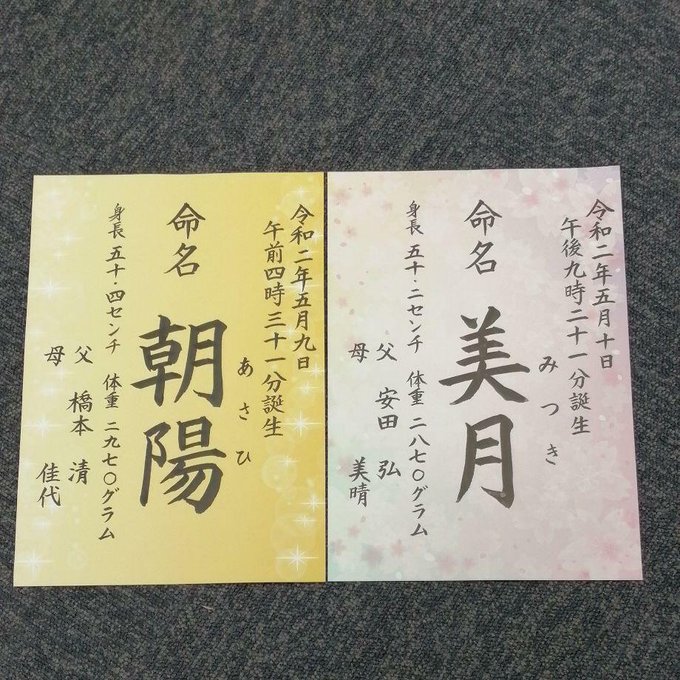 令和二年五月十日
午後九時二十一分誕生
命名
美月
みつき
身長 五十・二センチ 体重 二八七〇グラム
父 安田 弘
母 美晴
令和二年五月九日
午前四時三十一分誕生
命名
朝陽
あさひ
身長 五十・四センチ 体重 二九七〇グラム
父 橋本 清
母 佳代